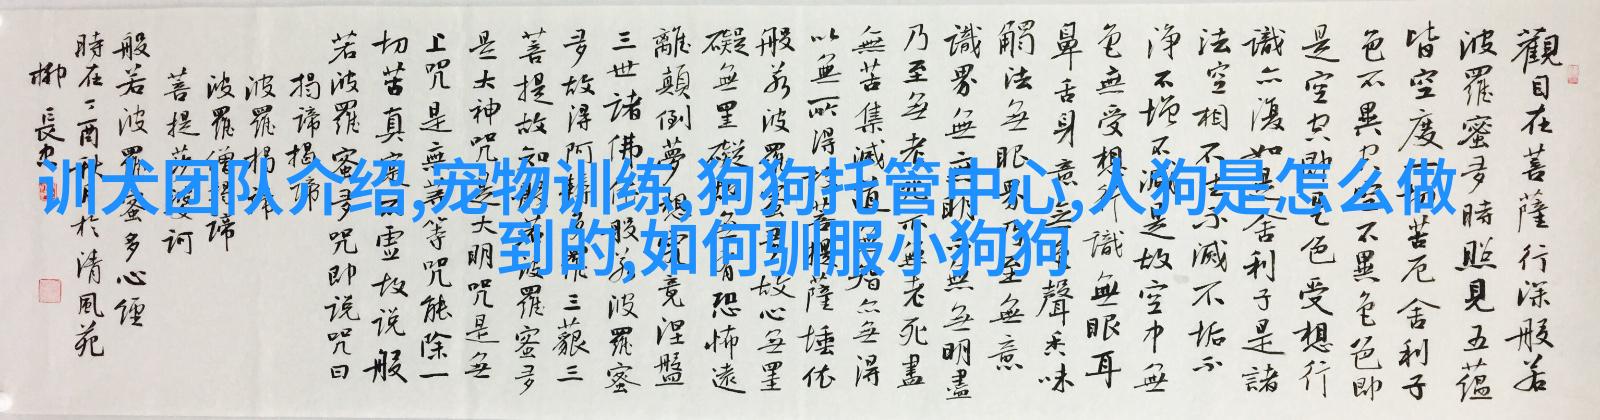 训犬团队介绍,宠物训练,狗狗托管中心,人狗是怎么做
到的,如何驯服小狗狗
觀自在菩薩行深般若
波羅蜜多時照見五蘊
皆空度一切苦厄舍利子
色不異空空不異色色即
是空空即是色受想行
識亦復如是舍利子是諸
法空相不生不滅不垢不
淨不增不減是故空中無
色無受想行識無眼耳
鼻舌身意無色聲香味
觸法無眼界乃至無意
識界無無明亦無無明盡
乃至無老死亦無老死盡
無苦集滅道無智亦無得
以無所得故菩提薩埵依
般若波羅蜜多故心無罣
礙無罣礙故無有恐怖遠
離顛倒夢想究竟涅盤
三世諸佛依般若波羅蜜
多故得阿耨多羅三藐三
菩提故知般若波羅蜜多
是大神咒是大明咒是無
上咒是無等等咒能除一
切苦真實不虛故說般
若波羅蜜多咒即說咒曰
揭諦揭諦
波羅揭諦
波羅僧揭諦
菩提薩婆訶
般若波羅蜜多心經
時在丁酉秋月於清風苑
柳長忠